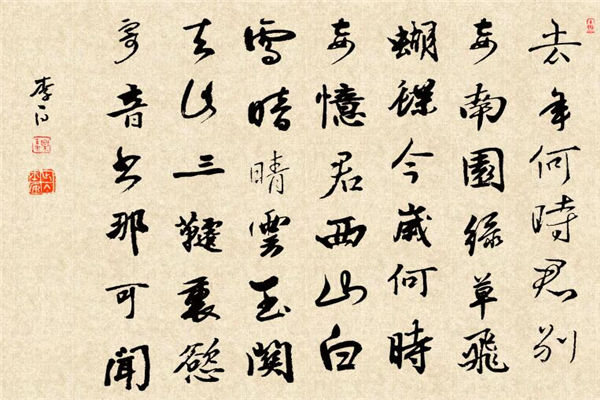 去年何時君別
妾南園綠草飛
蝴蝶今歲何時
妾憶君西山白
雪暗晴雲玉關
去此三韆裏慾
寄音书那可聞
李白